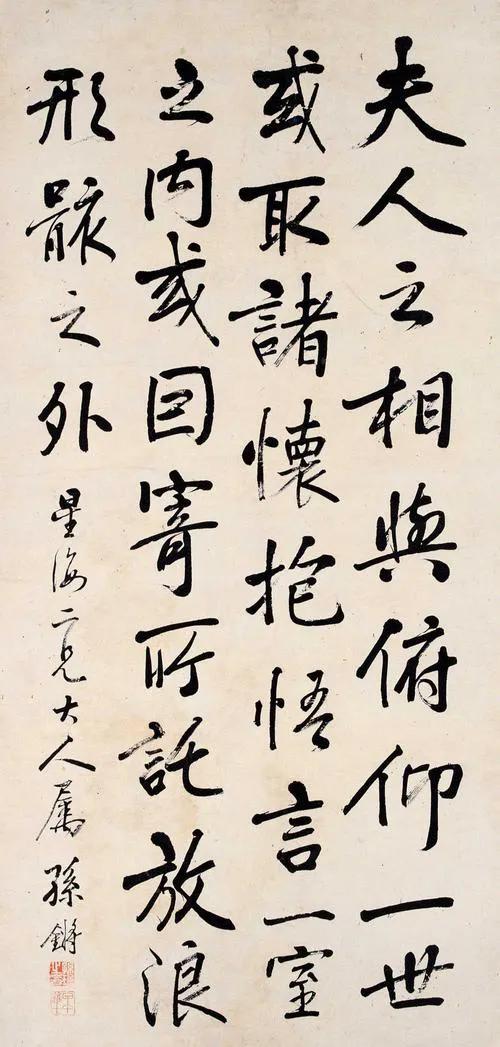 夫人之相與俯仰一世
或取諸懷抱悟言一室
之内或因寄所託放浪
形骸之外 星海二兄大人屬 孫鏘